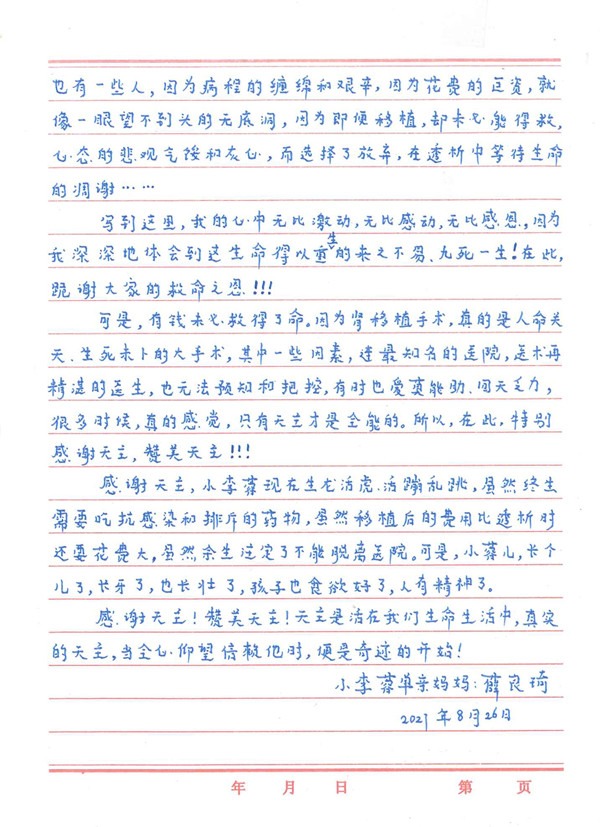 也有一些人，因为病程的缠绵和艰辛，因为花费的巨资，就
像一眼望不到头的无底洞，因为即便移植，却未必能得救，
心态的悲观气馁和灰心，而选择了放弃，在透析中等待生命
的凋谢……
写到这里，我的心中无比激动，无比感动，无比感恩，因为
我深深地体会到这生命得以重生的来之不易、九死一生！在此，
跪谢大家的救命之恩！！！
可是，有钱未必救得了命。因为肾移植手术，真的是人命关
天、生死未卜的大手术，其中一些因素，连最知名的医院，医术再
精湛的医生，也无法预知和把控，有时也爱莫能助、回天乏力，
很多时候，真的感觉，只有天主才是全能的。所以，在此，特别
感谢天主，赞美天主！！！
感谢天主，小李蕊现在生龙活虎、活蹦乱跳，虽然终生
需要吃抗感染和排斥的药物，虽然移植后的费用比透析时
还要花费大，虽然余生注定了不能脱离医院。可是，小蕊儿，长个
儿了，长牙了，也长壮了，孩子也食欲好了，人有精神了。
感谢天主！赞美天主！天主是活在我们生命生活中，真实
的天主，当全心仰望信赖他时，便是奇迹的开始！
小李蕊单亲妈妈：薛良琦
2021年8月26日
年 月 日 第 页